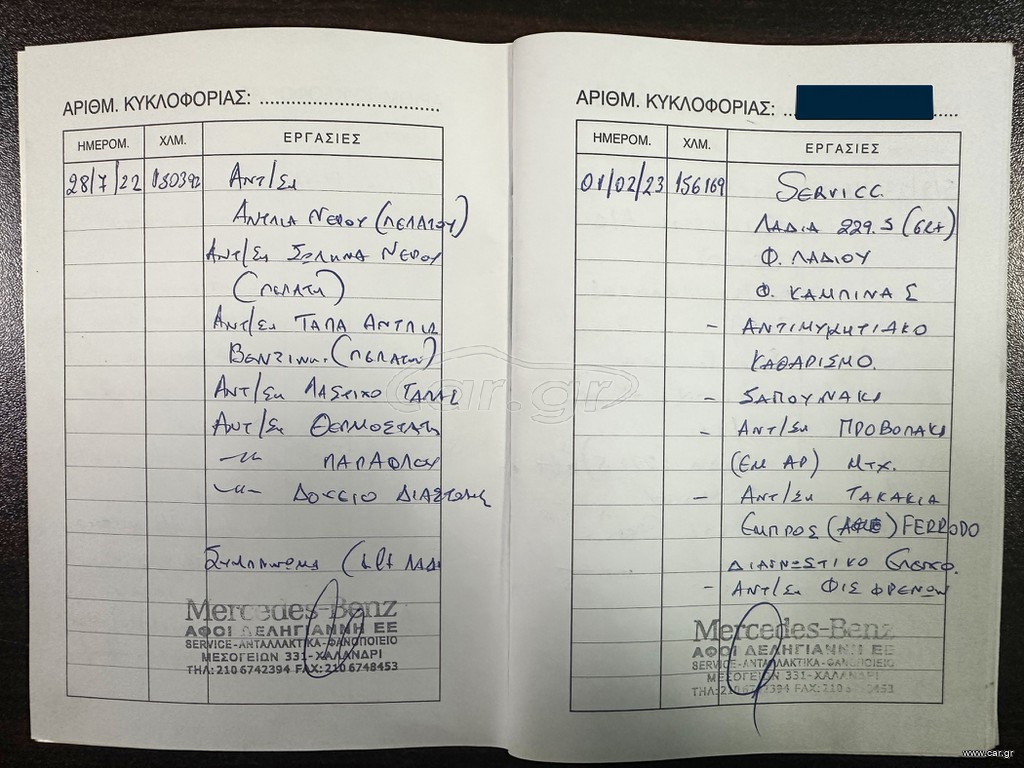 ΑΡΙΘΜ. ΚΥΚΛΟΦΟΡΙΑΣ: ..................................
ΗΜΕΡΟΜ. ΧΛΜ. ΕΡΓΑΣΙΕΣ
28/7/22 150392 ΑΝΤ/ΣΗ
ΑΝΤΛΙΑ ΝΕΡΟΥ (ΠΕΛΑΤΟΥ)
ΑΝΤ/ΣΗ ΣΩΛΗΝΑ ΝΕΡΟΥ
(ΠΕΛΑΤΗ)
ΑΝΤ/ΣΗ ΤΑΠΑ ΑΝΤΛΙΑ
ΒΕΝΖΙΝΗΣ (ΠΕΛΑΤΗ)
ΑΝΤ/ΣΗ ΛΑΣΤΙΧΟ ΤΑΠΑΣ
ΑΝΤ/ΣΗ ΘΕΡΜΟΣΤΑΤΗ
-〃- ΠΑΡΑΦΛΟΥ
-〃- ΔΟΧΕΙΟ ΔΙΑΣΤΟΛΗΣ
ΣΥΜΠΛΗΡΩΜΑ (1 Lt ΛΑΔΙ
Mercedes-Benz
ΑΦΟΙ ΔΕΛΗΓΙΑΝΝΗ ΕΕ
SERVICE-ΑΝΤΑΛΛΑΚΤΙΚΑ-ΦΑΝΟΠΟΙΕΙΟ
ΜΕΣΟΓΕΙΩΝ 331-ΧΑΛΑΝΔΡΙ
ΤΗΛ: 210 6742394 FAX: 210 6748453
ΑΡΙΘΜ. ΚΥΚΛΟΦΟΡΙΑΣ:
ΗΜΕΡΟΜ. ΧΛΜ. ΕΡΓΑΣΙΕΣ
01/02/23 156169 SERVICE
ΛΑΔΙΑ 229.5 (6Lt)
Φ. ΛΑΔΙΟΥ
Φ. ΚΑΜΠΙΝΑΣ
- ΑΝΤΙΜΥΚΗΤΙΑΚΟ
ΚΑΘΑΡΙΣΜΟ.
- ΣΑΠΟΥΝΑΚΙ
- ΑΝΤ/ΣΗ ΠΡΟΒΟΛΑΚΙ
(ΕΜ ΑΡ) ΜΤΧ.
- ΑΝΤ/ΣΗ ΤΑΚΑΚΙΑ
ΕΜΠΡΟΣ FERRODO
ΔΙΑΓΝΩΣΤΙΚΟ ΕΛΕΓΧΟ.
- ΑΝΤ/ΣΗ ΦΙΣ ΦΡΕΝΩΝ
Mercedes-Benz
ΑΦΟΙ ΔΕΛΗΓΙΑΝΝΗ ΕΕ
SERVICE-ΑΝΤΑΛΛΑΚΤΙΚΑ-ΦΑΝΟΠΟΙΕΙΟ
ΜΕΣΟΓΕΙΩΝ 331-ΧΑΛΑΝΔΡΙ
ΤΗΛ: 210
car.gr
www.car.gr